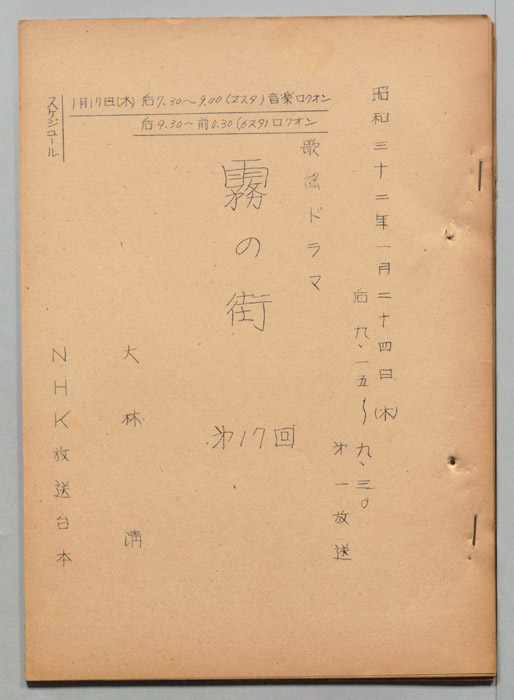 昭和三十二年一月二十四日(木)
后九、一五〜九、三〇
第一放送
歌謡ドラマ
霧の街
第17回
大林清
NHK放送台本
スケジュール
1月17日(木)后7.30〜9.00(2スタ)音楽ロクオン
后9.30〜前0.30(6スタ)ロクオン